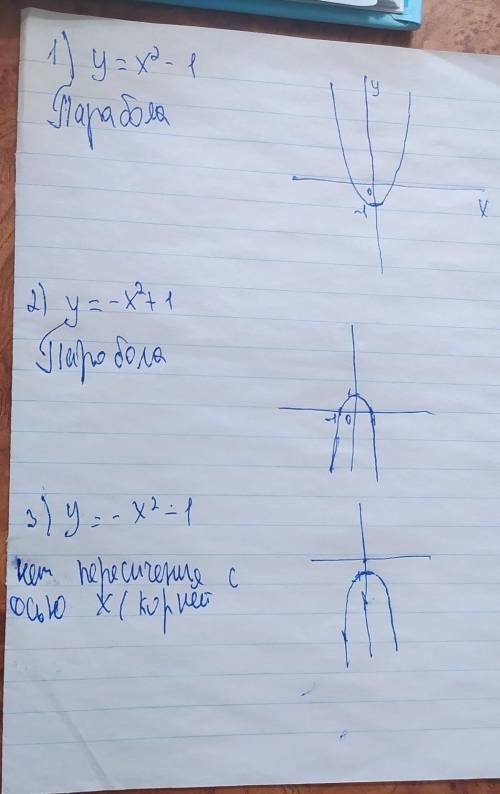 1) y = x² - 1
Парабола
y
0
-1
x
2) y = -x² + 1
Паробола
1
-1 0
3) y = -x² - 1
нет пересичения с
осью х ( корней
-1